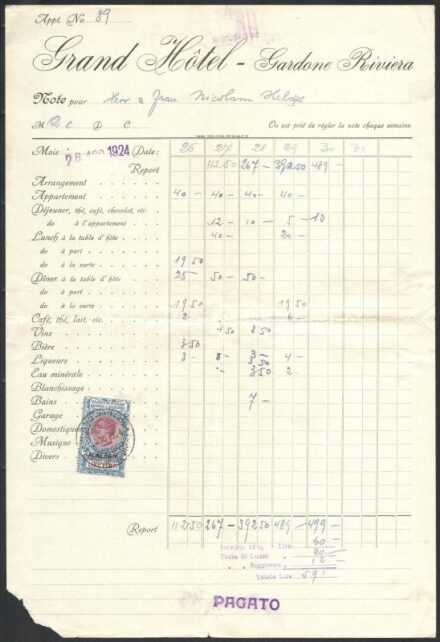 Appt. No 89
Grand Hôtel - Gardone Riviera
Note pour Herr & Frau Nicolaus
On est prié de régler la note chaque semaine.
Mois 28 AGO 1924 Date: 26 27 28 29 30 31
Report 112 50 267 - 392 50 489 -
Arrangement
Appartement 40 - 40 - 40 - 40 -
Déjeuner, thé, café, chocolat, etc.
do à l'appartement 12 - 10 - 5 - 10
Lunch à la table d'hôte 40 - 20 -
do à part
do à la carte 19 50
Dîner à la table d'hôte 25 50 - 50 -
do à part
do à la carte 19 50 19 50
Café, thé, lait, etc. 2 6 -
Vins 4 50 8 50
Bière 3 50
Liqueurs 3 - 8 - 3 - 4 -
Eau minérale 3 50 2
Blanchissage
Bains 7 -
Garage
Domestiques
Musique
Divers
Report 112 50 267 - 392 50 489 499 -
Lire 60
Tassa di Lusso 20
Soggiorno 12
Totale Lire 591
PAGATO